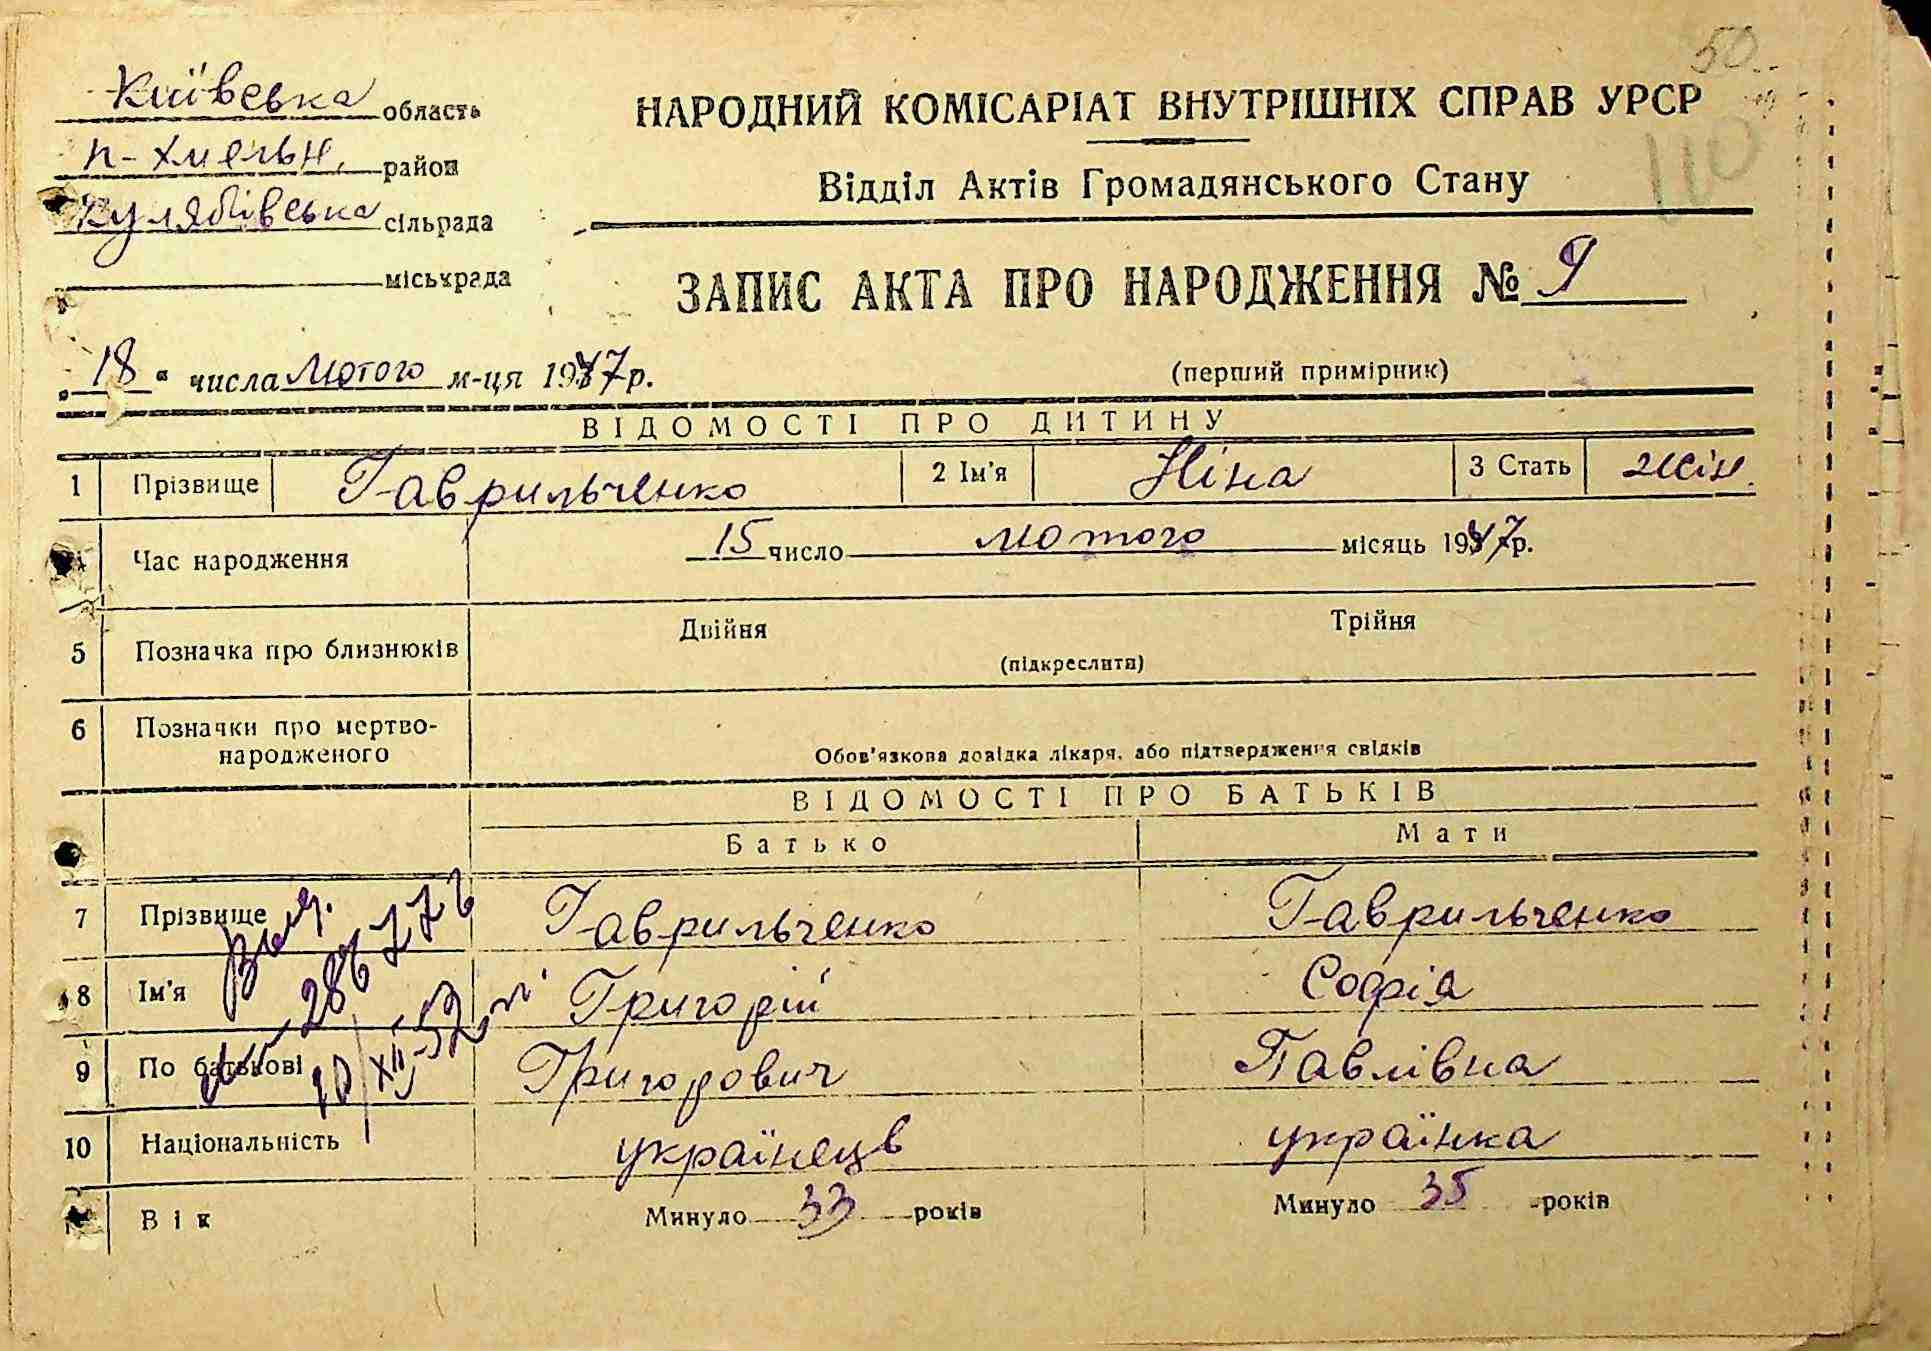 50
110
Київська область
п-хмельн. район
Кулябівська сільрада
міськрада
НАРОДНИЙ КОМІСАРІАТ ВНУТРІШНІХ СПРАВ УРСР
Відділ Актів Громадянського Стану
ЗАПИС АКТА ПРО НАРОДЖЕННЯ № 9
„18" числа Лютого м-ця 1947 р.
(перший примірник)
ВІДОМОСТІ ПРО ДИТИНУ
1 Прізвище Гаврильченко 2 Ім'я Ніна 3 Стать жін.
Час народження 15 число лютого місяць 1947 р.
5 Позначка про близнюків Двійня Трійня
(підкреслити)
6 Позначки про мертво-
народженого
Обов'язкова довідка лікаря, або підтвердження свідків
ВІДОМОСТІ ПРО БАТЬКІВ
Батько Мати
7 Прізвище Гаврильченко Гаврильченко
8 Ім'я Григорій Софія
9 По батькові Григорович Павлівна
10 Національність українець українка
Вік Минуло 33 років Минуло 35 років
10/XII-52